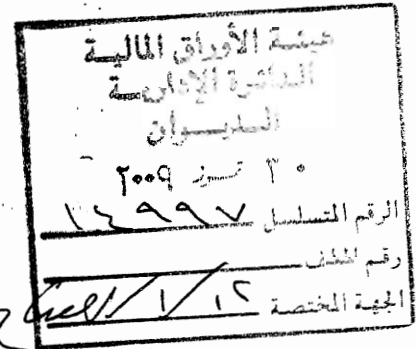 هيئة الأوراق المالية
الدائرة الإدارية
الديوان
٣٠ تموز ٢٠٠٩
الرقم المتسلسل ١٤٩٩٧
رقم الملف
الجهة المختصة ١٢/١/